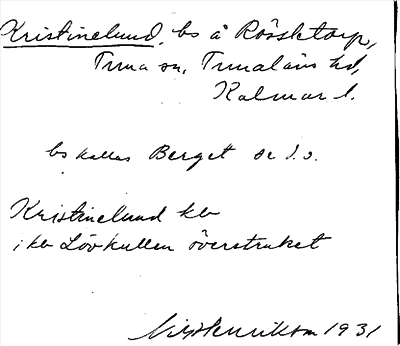 Kristinelund, bs å Rössktorp,
Tuna sn, Tunaläns hd,
Kalmar l.
bs kallas Berget se d.o.
Kristinelund kb
i kb Lövkullen överstruket
Nils Henrikson 1931